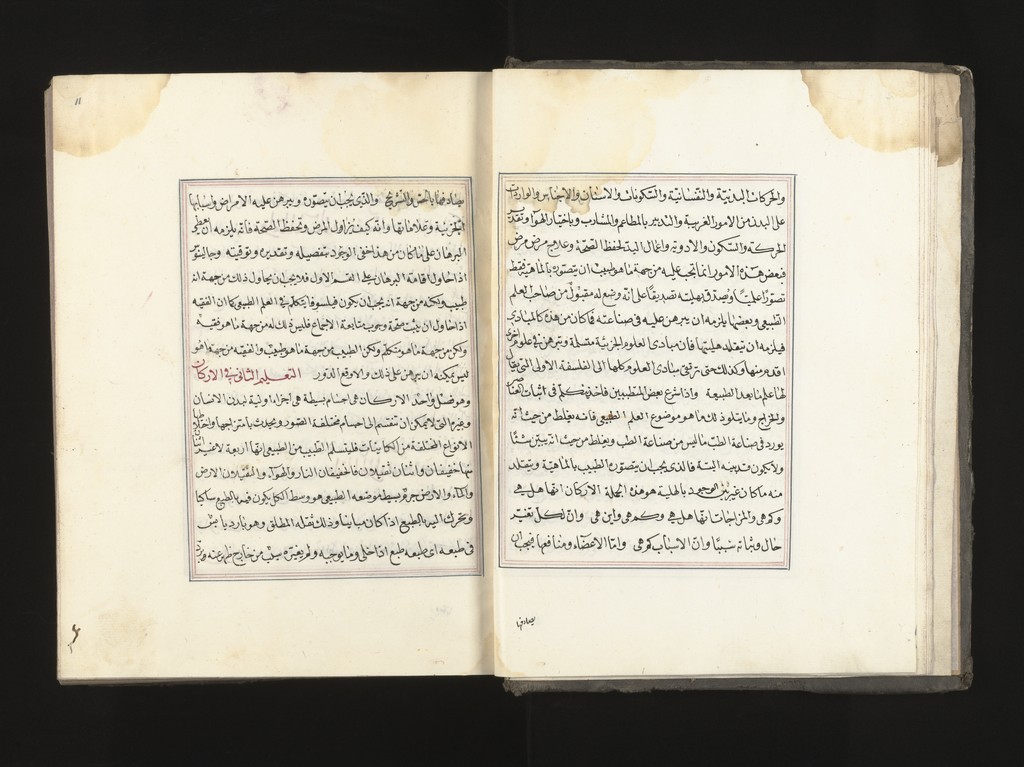 والحركات البدنية والنفسانية والسكونات والاسنان والاجناس والواردات
على البدن من الامور الغريبة والتدبير بالمطاعم والمشارب وباختيار الهواء وتقدير
الحركة والسكون والادوية واعمال اليد لحفظ الصحة وعلاج مرض مرض
فبعض هذه الامور انما يجب عليه من جهة ما هو طبيب ان يتصوره بالماهية فقط
تصورا علميا ويصدق بهليته تصديقا على انه وضع له مقبول من صاحب العلم
الطبيعى وبعضها يلزمه ان يبرهن عليه فى صناعته فما كان من هذه كالمبادى
فيلزمه ان يتقلد هليتها فان مبادى العلوم الجزئية متسلمة وتتبرهن فى علوم اخرى
اقدم منها وكذلك حتى ترتقى مبادى العلوم كلها الى الفلسفة الاولى التى يقال
لها علم ما بعد الطبيعة واذا شرع بعض المتطببين فاخذ يتكلم فى اثبات العناصر
والمزاج وما يتلو ذلك مما هو موضوع العلم الطبيعى فانه يغلط من حيث انه
يورد فى صناعة الطب ما ليس من صناعة الطب ويغلط من حيث انه يبين شيئا
ولا يكون قد بينه البتة فالذى يجب ان يتصوره الطبيب بالماهية ويتقلد
منه ما كان غير بين الوجود بالهلية هو هذه الجملة الاركان انها هل هى
وكم هى والمزاجات انها هل هى وكم هى واين هى وان لكل تغير
حال وثباته سببا وان الاسباب كم هى واما الاعضاء ومنافعها فيجب ان
يصادفها
١١
يصادفها بالحس والتشريح والذى يجب ان يتصوره ويبرهن عليه الامراض واسبابها
الجزئية وعلاماتها وانه كيف يزاول المرض وتحفظ الصحة فانه يلزمه ان يعطى
البرهان على ما كان من هذا خفى الوجود بتفصيله وتقديره وتوقيته وجالينوس
اذا حاول اقامة البرهان على القسم الاول فلا يجب ان يحاول ذلك من جهة انه
طبيب ولكنه من جهة انه يجب ان يكون فيلسوفا يتكلم فى العلم الطبيعى كما ان الفقيه
اذا حاول ان يثبت صحة وجوب متابعة الاجماع فليس ذلك له من جهة ما هو فقيه
ولكن من جهة ما هو متكلم ولكن الطبيب من جهة ما هو طبيب والفقيه من جهة ما هو
ليس يمكنه ان يبرهن على ذلك والا وقع الدور التعليم الثانى فى الاركان
وهو فصل واحد الاركان هى اجسام بسيطة هى اجزاء اولية لبدن الانسان
وغيره التى لا يمكن ان تنقسم الى اجسام مختلفة الصور ويحدث بامتزاجها واختلاطها
الانواع المختلفة من الكائنات فليتسلم الطبيب من الطبيعى انها اربعة لا غير اثنان
منها خفيفان واثنان ثقيلان فالخفيفان النار والهواء والثقيلان الارض
والماء والارض جرم بسيط موضعه الطبيعى هو وسط الكل يكون فيه بالطبع ساكنا
ويتحرك اليه بالطبع اذا كان مباينا وذلك ثقله المطلق وهو بارد يابس
فى طبعه اى طبعه طبع اذا خلى وما يوجبه ولم يغيره سبب من خارج ظهر عنه برد